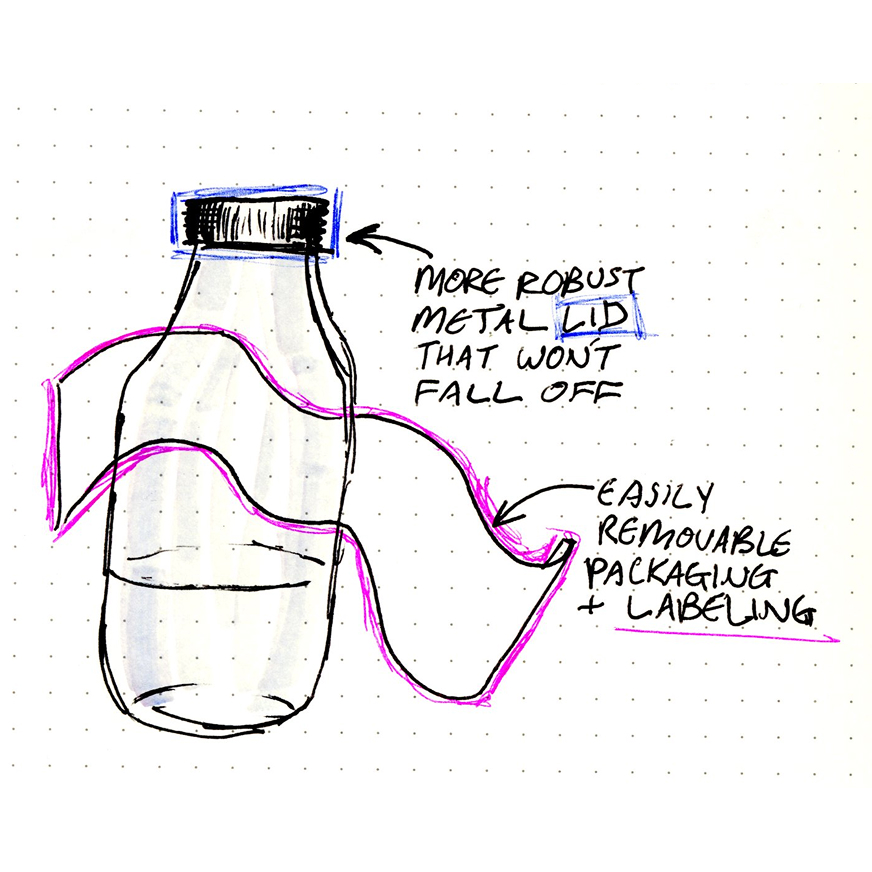 MORE ROBUST
METAL LID
THAT WON'T
FALL OFF
EASILY
REMOVABLE
PACKAGING
+ LABELING